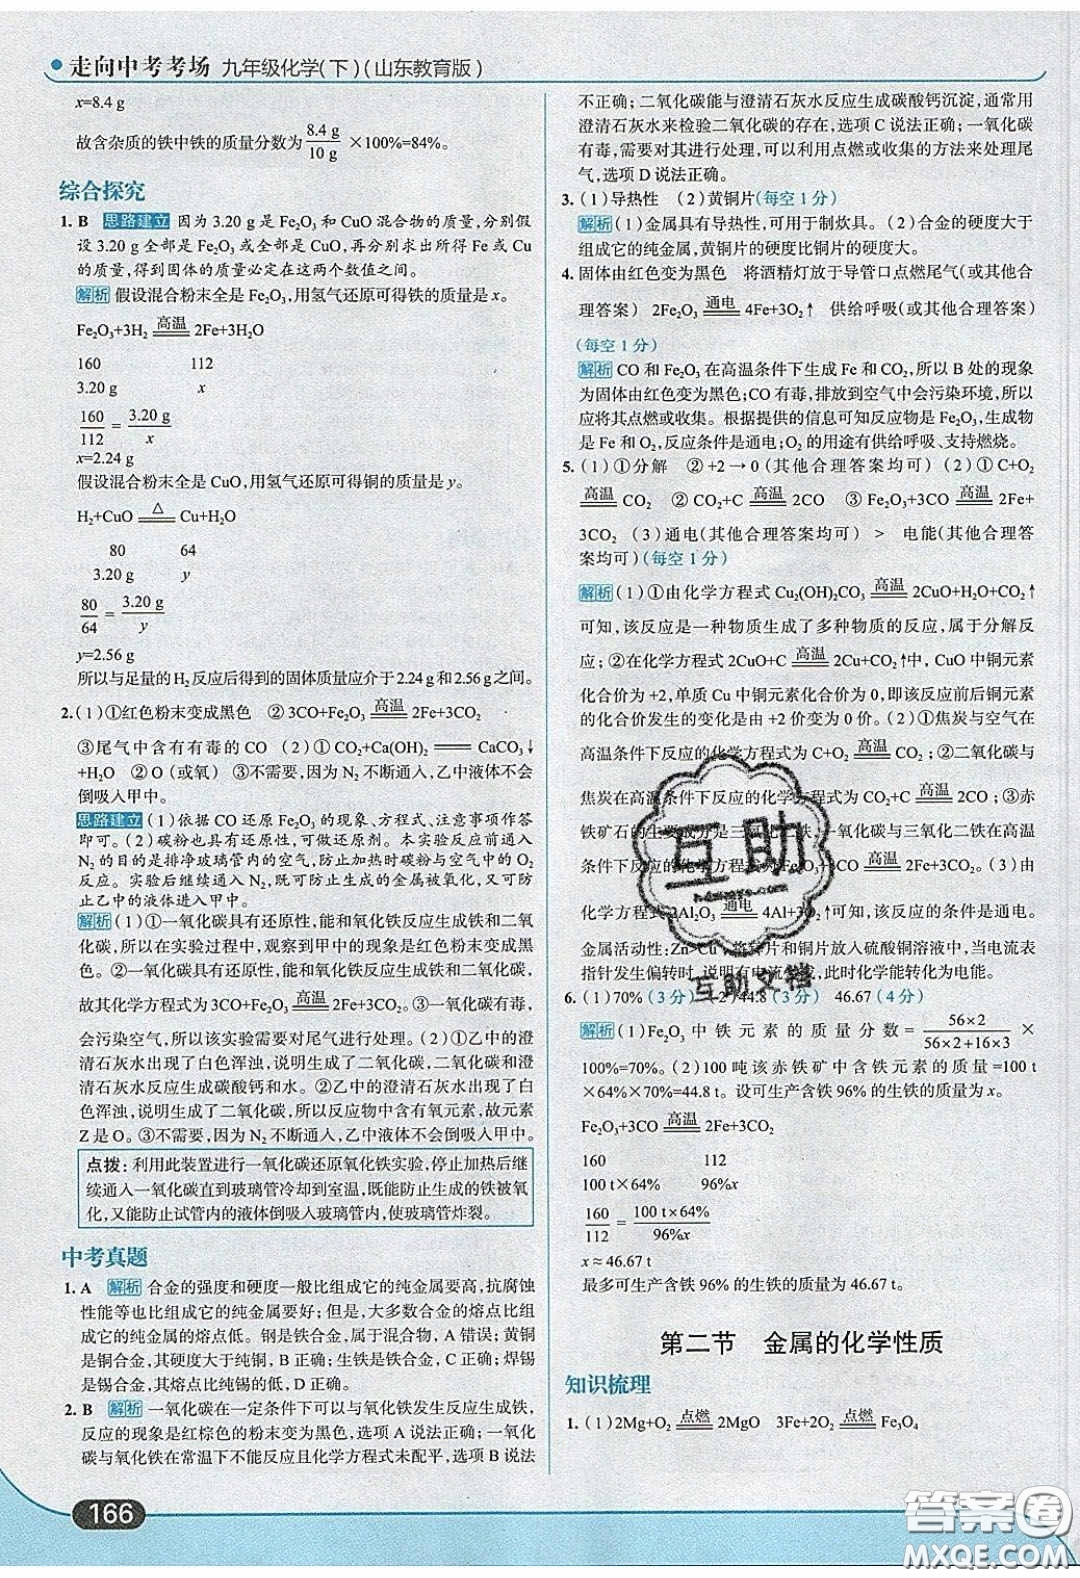 走向中考考场 九年级化学(下)(山东教育版)
x=8.4 g
故含杂质的铁中铁的质量分数为 8.4 g/10 g ×100%=84%。
综合探究
1. B 思路建立 因为 3.20 g 是 Fe₂O₃ 和 CuO 混合物的质量,分别假
设 3.20 g 全部是 Fe₂O₃ 或全部是 CuO,再分别求出所得 Fe 或 Cu
的质量,得到固体的质量必定在这两个数值之间。
解析 假设混合粉末全是 Fe₂O₃,用氢气还原可得铁的质量是 x。
Fe₂O₃+3H₂ =高温= 2Fe+3H₂O
160 112
3.20 g x
160/112 = 3.20 g/x
x=2.24 g
假设混合粉末全是 CuO,用氢气还原可得铜的质量是 y。
H₂+CuO =△= Cu+H₂O
80 64
3.20 g y
80/64 = 3.20 g/y
y=2.56 g
所以与足量的 H₂ 反应后得到的固体质量应介于 2.24 g 和 2.56 g 之间。
2. (1)①红色粉末变成黑色 ②3CO+Fe₂O₃ =高温= 2Fe+3CO₂
③尾气中含有有毒的 CO (2)①CO₂+Ca(OH)₂ == CaCO₃↓
+H₂O ②O(或氧) ③不需要,因为 N₂ 不断通入,乙中液体不会
倒吸入甲中。
思路建立 (1)依据 CO 还原 Fe₂O₃ 的现象、方程式、注意事项作答
即可。(2)碳粉也具有还原性,可做还原剂。本实验反应前通入
N₂ 的目的是排净玻璃管内的空气,防止加热时碳粉与空气中的 O₂
反应。实验后继续通入 N₂,既可防止生成的金属被氧化,又可防
止乙中的液体进入甲中。
解析 (1)①一氧化碳具有还原性,能和氧化铁反应生成铁和二氧
化碳,所以在实验过程中,观察到甲中的现象是红色粉末变成黑
色。②一氧化碳具有还原性,能和氧化铁反应生成铁和二氧化碳,
故其化学方程式为 3CO+Fe₂O₃ =高温= 2Fe+3CO₂。③一氧化碳有毒,
会污染空气,所以该实验需要对尾气进行处理。(2)①乙中的澄
清石灰水出现了白色浑浊,说明生成了二氧化碳,二氧化碳和澄
清石灰水反应生成碳酸钙和水。②乙中的澄清石灰水出现了白
色浑浊,说明生成了二氧化碳,所以反应物中含有氧元素,故元素
Z 是 O。③不需要,因为 N₂ 不断通入,乙中液体不会倒吸入甲中。
点拨:利用此装置进行一氧化碳还原氧化铁实验,停止加热后继
续通入一氧化碳直到玻璃管冷却到室温,既能防止生成的铁被氧
化,又能防止试管内的液体倒吸入玻璃管内,使玻璃管炸裂。
中考真题
1. A 解析 合金的强度和硬度一般比组成它的纯金属要高,抗腐蚀
性能等也比组成它的纯金属要好;但是,大多数合金的熔点比组
成它的纯金属的熔点低。钢是铁合金,属于混合物,A 错误;黄铜
是铜合金,其硬度大于纯铜,B 正确;生铁是铁合金,C 正确;焊锡
是锡合金,其熔点比纯锡的低,D 正确。
2. B 解析 一氧化碳在一定条件下可以与氧化铁发生反应生成铁,
反应的现象是红棕色的粉末变为黑色,选项 A 说法正确;一氧化
碳与氧化铁在常温下不能反应且化学方程式未配平,选项 B 说法
不正确;二氧化碳能与澄清石灰水反应生成碳酸钙沉淀,通常用
澄清石灰水来检验二氧化碳的存在,选项 C 说法正确;一氧化碳
有毒,需要对其进行处理,可以利用点燃或收集的方法来处理尾
气,选项 D 说法正确。
3. (1)导热性 (2)黄铜片(每空 1 分)
解析 (1)金属具有导热性,可用于制炊具。(2)合金的硬度大于
组成它的纯金属,黄铜片的硬度比铜片的硬度大。
4. 固体由红色变为黑色 将酒精灯放于导管口点燃尾气(或其他合
理答案) 2Fe₂O₃ =通电= 4Fe+3O₂↑ 供给呼吸(或其他合理答案)
(每空 1 分)
解析 CO 和 Fe₂O₃ 在高温条件下生成 Fe 和 CO₂,所以 B 处的现象
为固体由红色变为黑色;CO 有毒,排放到空气中会污染环境,所以
应将其点燃或收集。根据提供的信息可知反应物是 Fe₂O₃,生成物
是 Fe 和 O₂,反应条件是通电;O₂ 的用途有供给呼吸、支持燃烧。
5. (1)①分解 ②+2→0(其他合理答案均可) (2)①C+O₂
=高温= CO₂ ②CO₂+C =高温= 2CO ③Fe₂O₃+3CO =高温= 2Fe+
3CO₂ (3)通电(其他合理答案均可) > 电能(其他合理答
案均可)(每空 1 分)
解析 (1)①由化学方程式 Cu₂(OH)₂CO₃ =高温= 2CuO+H₂O+CO₂↑
可知,该反应是一种物质生成了多种物质的反应,属于分解反
应;②在化学方程式 2CuO+C =高温= 2Cu+CO₂↑中,CuO 中铜元素
化合价为 +2,单质 Cu 中铜元素化合价为 0,即该反应前后铜元素
的化合价发生的变化是由 +2 价变为 0 价。(2)①焦炭与空气在
高温条件下反应的化学方程式为 C+O₂ =高温= CO₂;②二氧化碳与
焦炭在高温条件下反应的化学方程式为 CO₂+C =高温= 2CO;③赤
铁矿石的主要成分是三氧化二铁,一氧化碳与三氧化二铁在高温
条件下反应的化学方程式为 Fe₂O₃+3CO =高温= 2Fe+3CO₂。(3)由
化学方程式 2Al₂O₃ =通电= 4Al+3O₂↑可知,该反应的条件是通电。
金属活动性:Zn>Cu 将锌片和铜片放入硫酸铜溶液中,当电流表
指针发生偏转时,说明有电流 ,此时化学能转化为电能。
6. (1)70%(3 分) (2)44.8(3 分) 46.67(4 分)
解析 (1)Fe₂O₃ 中铁元素的质量分数 = 56×2/56×2+16×3 ×
100%=70%。(2)100 吨该赤铁矿中含铁元素的质量 =100 t
×64%×70%=44.8 t。设可生产含铁 96% 的生铁的质量为 x。
Fe₂O₃+3CO =高温= 2Fe+3CO₂
160 112
100 t×64% 96%x
160/112 = 100 t×64%/96%x
x≈46.67 t
最多可生产含铁 96% 的生铁的质量为 46.67 t。
第二节 金属的化学性质
知识梳理
1. (1)2Mg+O₂ =点燃= 2MgO 3Fe+2O₂ =点燃= Fe₃O₄
166
互助
互助文档
答案圈
MXQE.COM